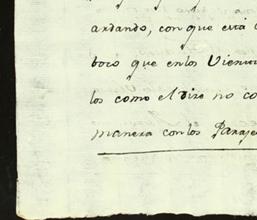 ardando, con que está
boco que en los Vien
los como el Dize no co
manera con los Paraje